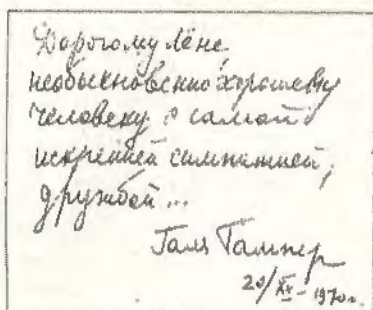 Дорогому Лёне,
необыкновенно хорошему
человеку с самой
искренней симпатией,
дружбой...
Галя Гампер
20/XII-1970г.